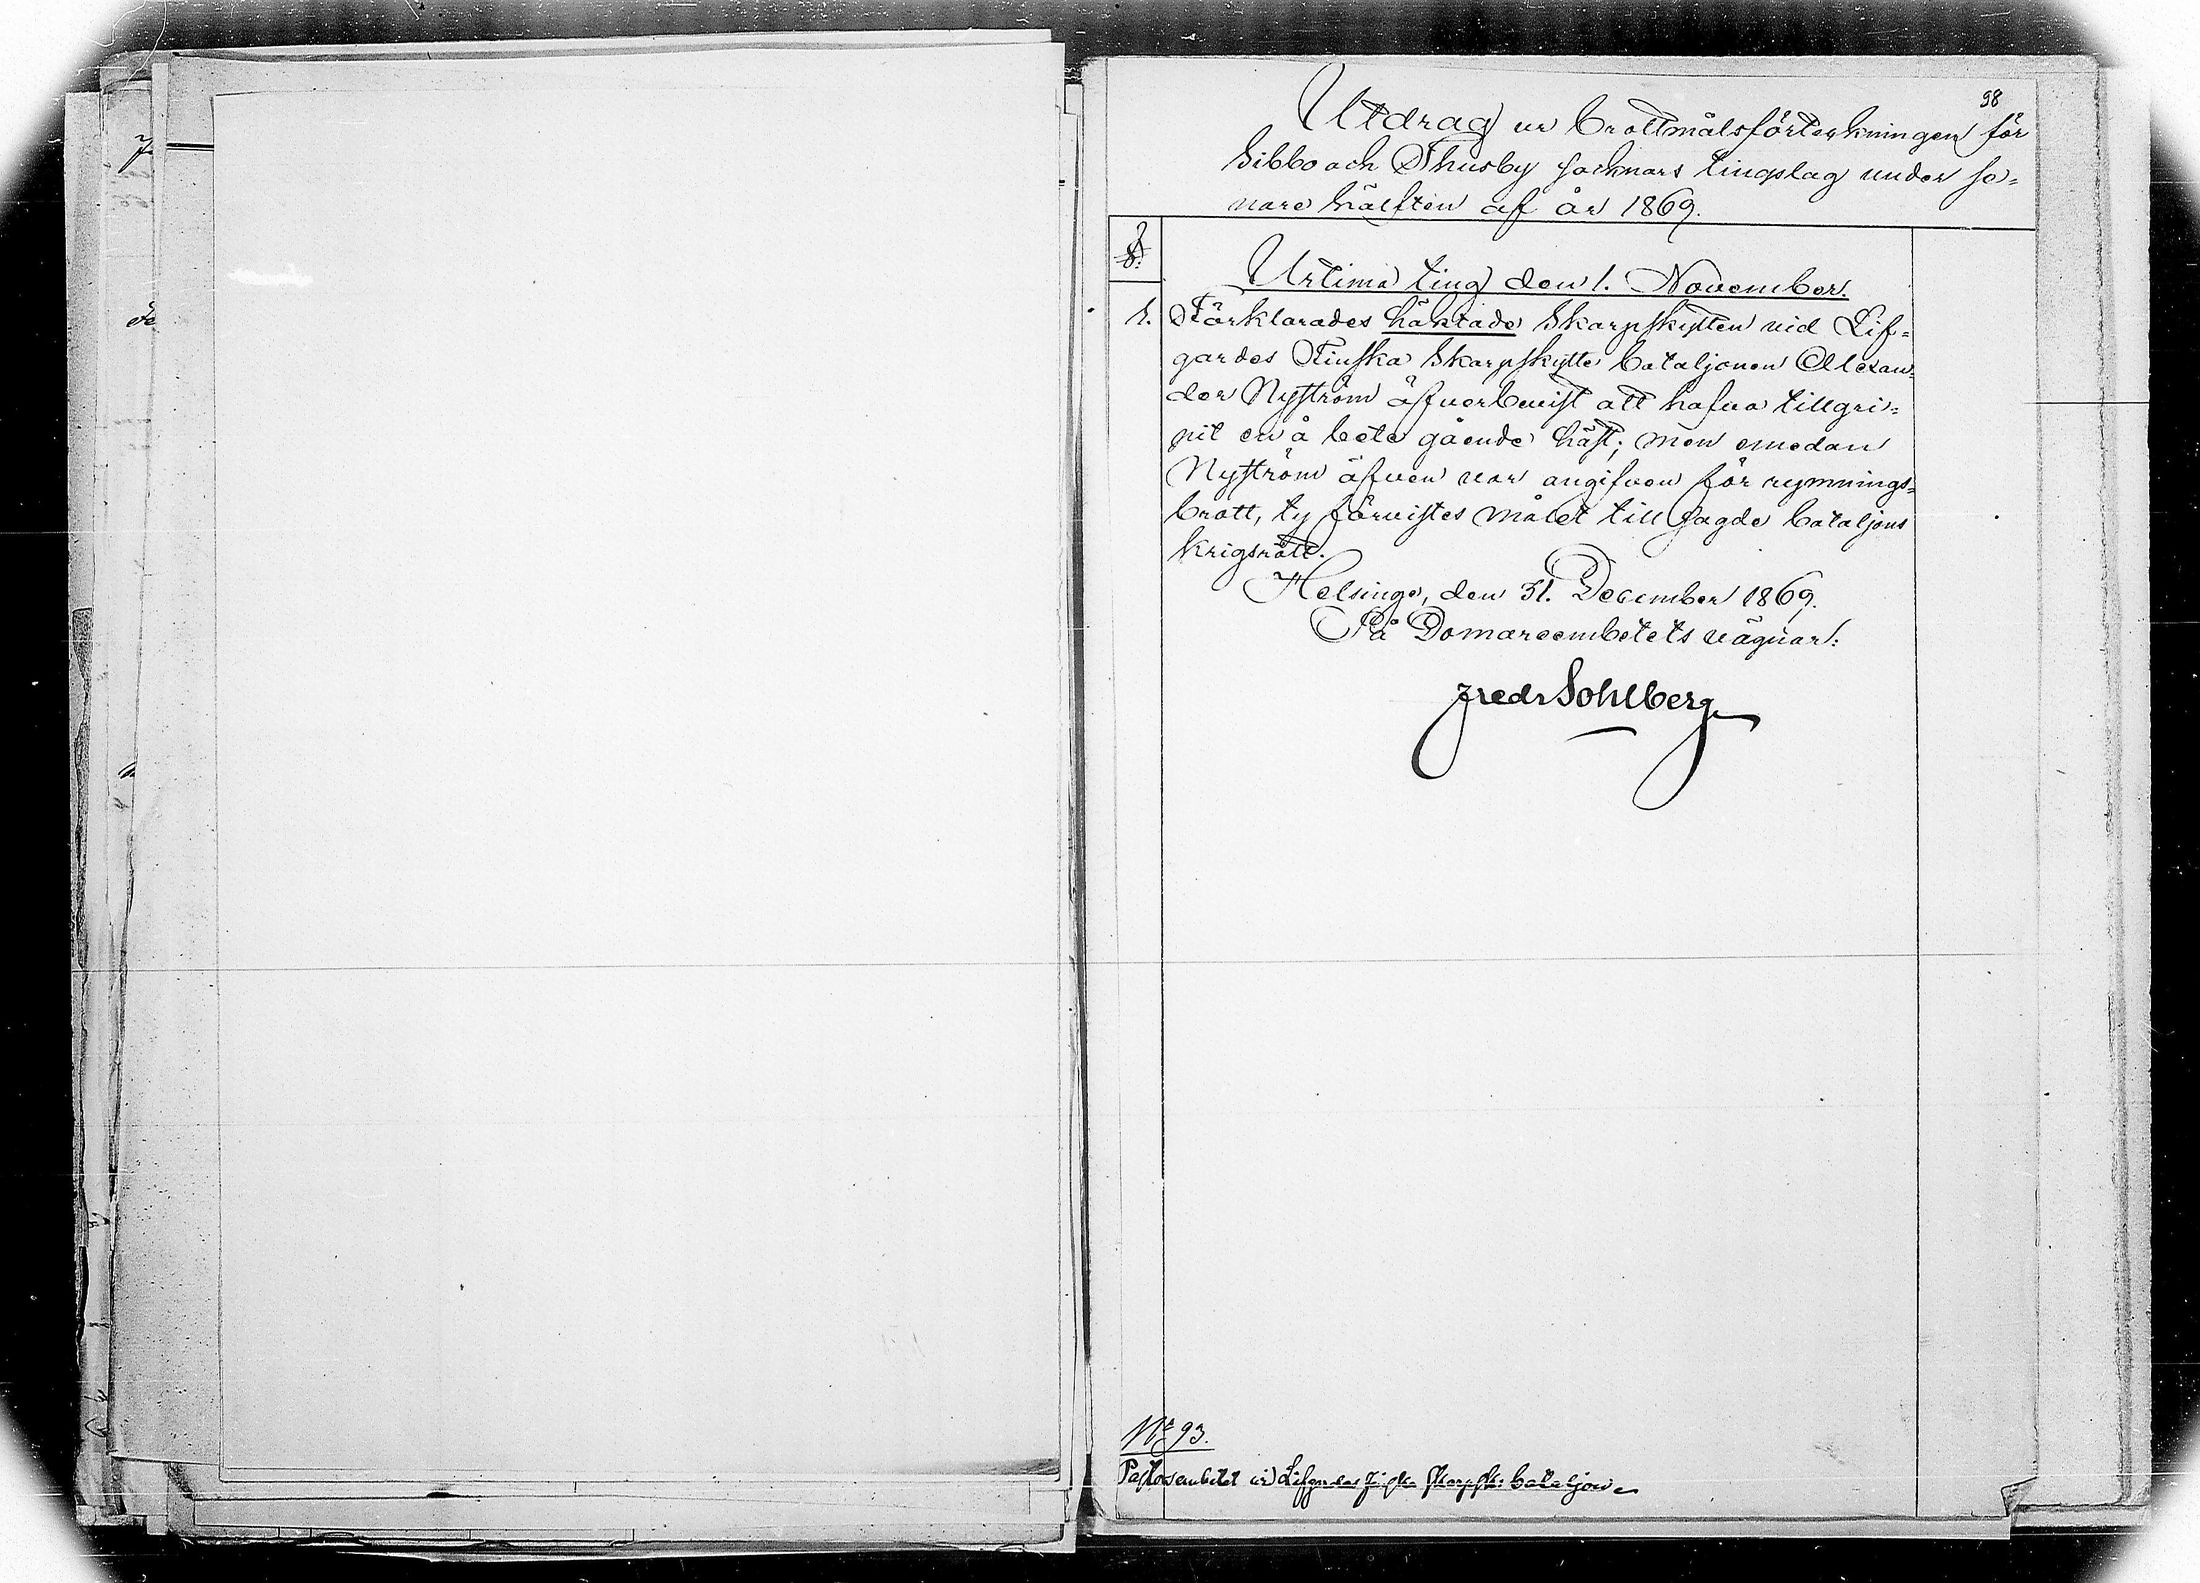 98
Utdrag ur Brottmålsförteckningen för
Sibbo och Thusby socknars tingslag under se=
nare hälften af år 1869.
§.
Urtima ting den 1. November.
1. Förklarades häktade Skarpskytten vid Lif=
gardes Finska Skarpskytte bataljonen Alexan=
der Nyström äfverbevist att hafva tillgri=
pit en å bete gående häst; men emedan
Nyström äfven var angifven för rymnings=
brott, ty förvistes målet till sagde bataljons
krigsrätt.
Helsinge, den 31. December 1869.
På Domareembetets vägnar:
Fredr Sohlberg
No 93.
Pastorsembetet vid Lifgardes Finska Skarpsk: bataljon